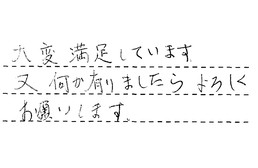 大変満足しています
又何か有りましたらよろしく
お願いします。